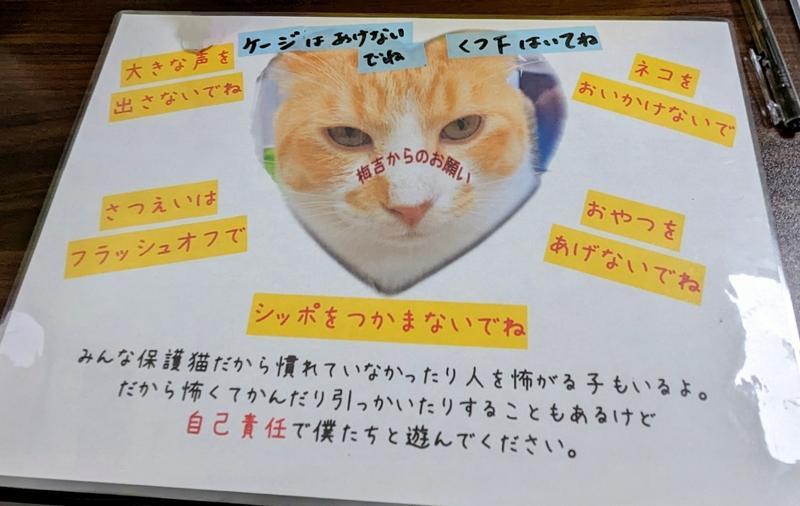 ケージはあけない
でね
くつ下はいてね
大きな声を
出さないでね
ネコを
おいかけないで
梅吉からのお願い
さつえいは
フラッシュオフで
おやつを
あげないでね
シッポをつかまないでね
みんな保護猫だから慣れていなかったり人を怖がる子もいるよ。
だから怖くてかんだり引っかいたりすることもあるけど
自己責任で僕たちと遊んでください。